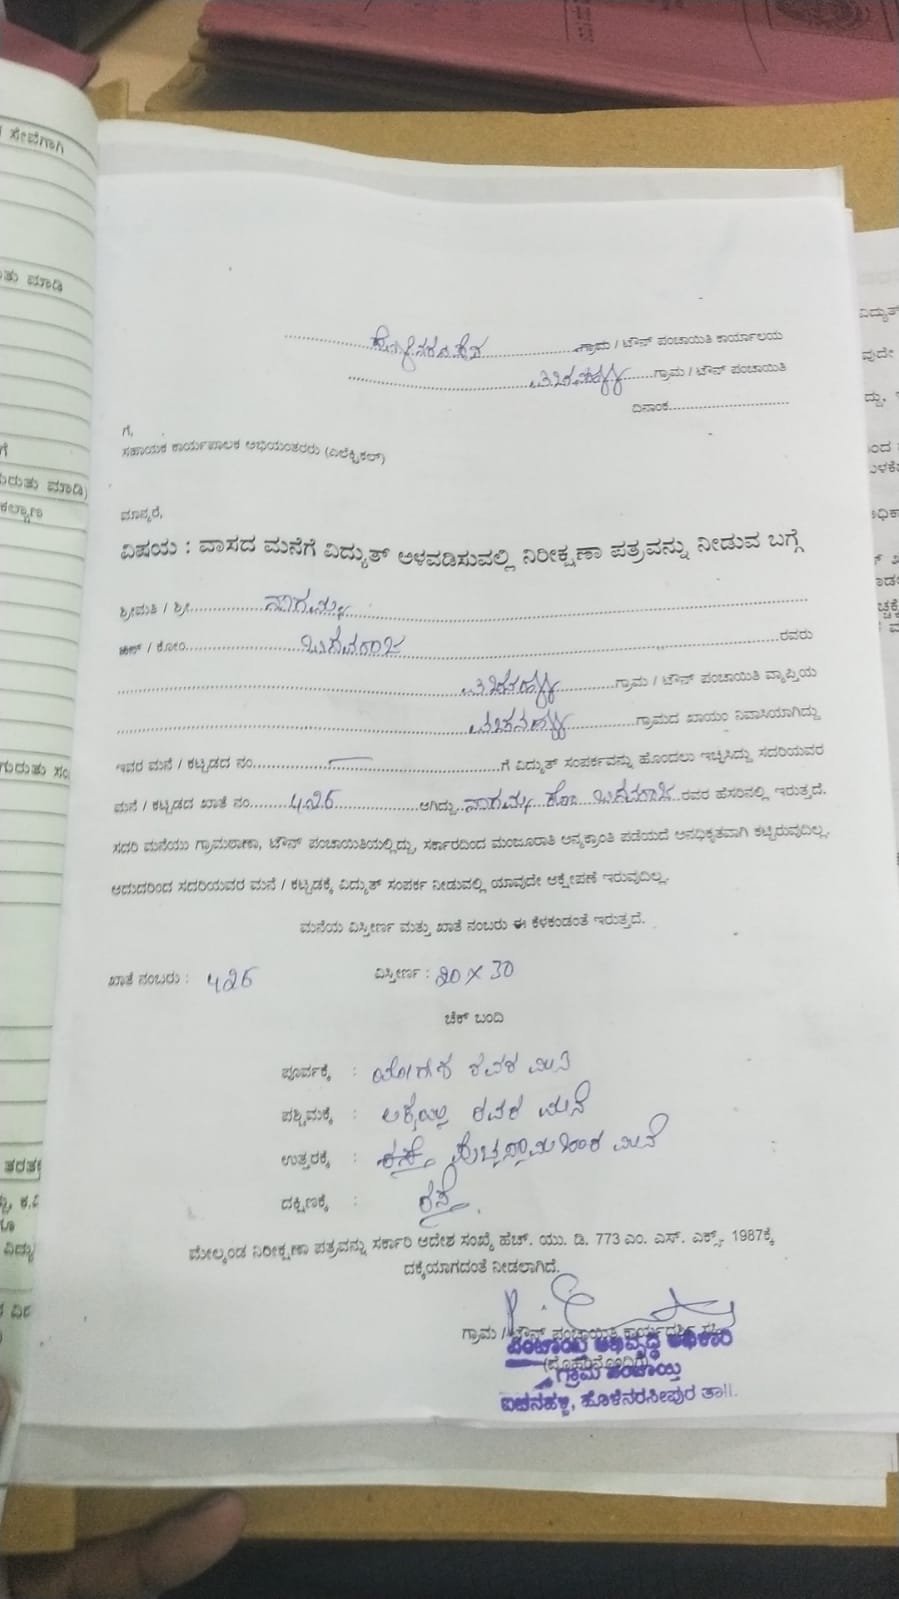 ಸೇವೆಗಾಗಿ
ಮಾಡಿ
ಮಾಡಿ)
ಕಲ್ಯಾಣ
ತರತಃ
ಗ್ರಾಮ / ಟೌನ್ ಪಂಚಾಯಿತಿ ಕಾರ್ಯಾಲಯ
ಗ್ರಾಮ / ಟೌನ್ ಪಂಚಾಯಿತಿ
ದಿನಾಂಕ
ಗೆ,
ಸಹಾಯಕ ಕಾರ್ಯಪಾಲಕ ಅಭಿಯಂತರರು (ಎಲೆಕ್ಟ್ರಿಕಲ್)
ಮಾನ್ಯರೆ,
ವಿಷಯ : ವಾಸದ ಮನೆಗೆ ವಿದ್ಯುತ್ ಅಳವಡಿಸುವಲ್ಲಿ ನಿರೀಕ್ಷಣಾ ಪತ್ರವನ್ನು ನೀಡುವ ಬಗ್ಗೆ
ಶ್ರೀಮತಿ / ಶ್ರೀ ನಾಗಮ್ಮ
/ ಕೋಂ ಬಸವರಾಜ ರವರು
ಗ್ರಾಮ / ಟೌನ್ ಪಂಚಾಯಿತಿ ವ್ಯಾಪ್ತಿಯ
ಗ್ರಾಮದ ಖಾಯಂ ನಿವಾಸಿಯಾಗಿದ್ದು
ಇವರ ಮನೆ / ಕಟ್ಟಡದ ನಂ. — ಗೆ ವಿದ್ಯುತ್ ಸಂಪರ್ಕವನ್ನು ಹೊಂದಲು ಇಚ್ಛಿಸಿದ್ದು ಸದರಿಯವರ
ಮನೆ / ಕಟ್ಟಡದ ಖಾತೆ ನಂ. 426 ಆಗಿದ್ದು ನಾಗಮ್ಮ ಕೋಂ ಬಸವರಾಜ ರವರ ಹೆಸರಿನಲ್ಲಿ ಇರುತ್ತದೆ.
ಸದರಿ ಮನೆಯು ಗ್ರಾಮಠಾಣಾ, ಟೌನ್ ಪಂಚಾಯಿತಿಯಲ್ಲಿದ್ದು, ಸರ್ಕಾರದಿಂದ ಮಂಜೂರಾತಿ ಅನ್ಯಕ್ರಾಂತಿ ಪಡೆಯದೆ ಅನಧಿಕೃತವಾಗಿ ಕಟ್ಟಿರುವುದಿಲ್ಲ.
ಆದುದರಿಂದ ಸದರಿಯವರ ಮನೆ / ಕಟ್ಟಡಕ್ಕೆ ವಿದ್ಯುತ್ ಸಂಪರ್ಕ ನೀಡುವಲ್ಲಿ ಯಾವುದೇ ಆಕ್ಷೇಪಣೆ ಇರುವುದಿಲ್ಲ.
ಮನೆಯ ವಿಸ್ತೀರ್ಣ ಮತ್ತು ಖಾತೆ ನಂಬರು ಈ ಕೆಳಕಂಡಂತೆ ಇರುತ್ತದೆ.
ಖಾತೆ ನಂಬರು : 426 ವಿಸ್ತೀರ್ಣ : 20 X 30
ಚೆಕ್ ಬಂದಿ
ಪೂರ್ವಕ್ಕೆ : ಯೋಗೇಶ ರವರ ಮನೆ
ಪಶ್ಚಿಮಕ್ಕೆ : ರವರ ಮನೆ
ಉತ್ತರಕ್ಕೆ : ರಸ್ತೆ ಮನೆ
ದಕ್ಷಿಣಕ್ಕೆ : ರಸ್ತೆ
ಮೇಲ್ಕಂಡ ನಿರೀಕ್ಷಣಾ ಪತ್ರವನ್ನು ಸರ್ಕಾರಿ ಆದೇಶ ಸಂಖ್ಯೆ ಹೆಚ್. ಯು. ಡಿ. 773 ಎಂ. ಎಸ್. ಎಕ್ಸ್- 1987ಕ್ಕೆ
ದಕ್ಕೆಯಾಗದಂತೆ ನೀಡಲಾಗಿದೆ.
ಗ್ರಾಮ / ಟೌನ್ ಪಂಚಾಯಿತಿ ಕಾರ್ಯದರ್ಶಿ
ಪಂಚಾಯಿತಿ ಅಭಿವೃದ್ಧಿ ಅಧಿಕಾರಿ
ಗ್ರಾಮ ಪಂಚಾಯ್ತಿ
ಐಚನಹಳ್ಳಿ, ಹೊಳೆನರಸೀಪುರ ತಾ||.